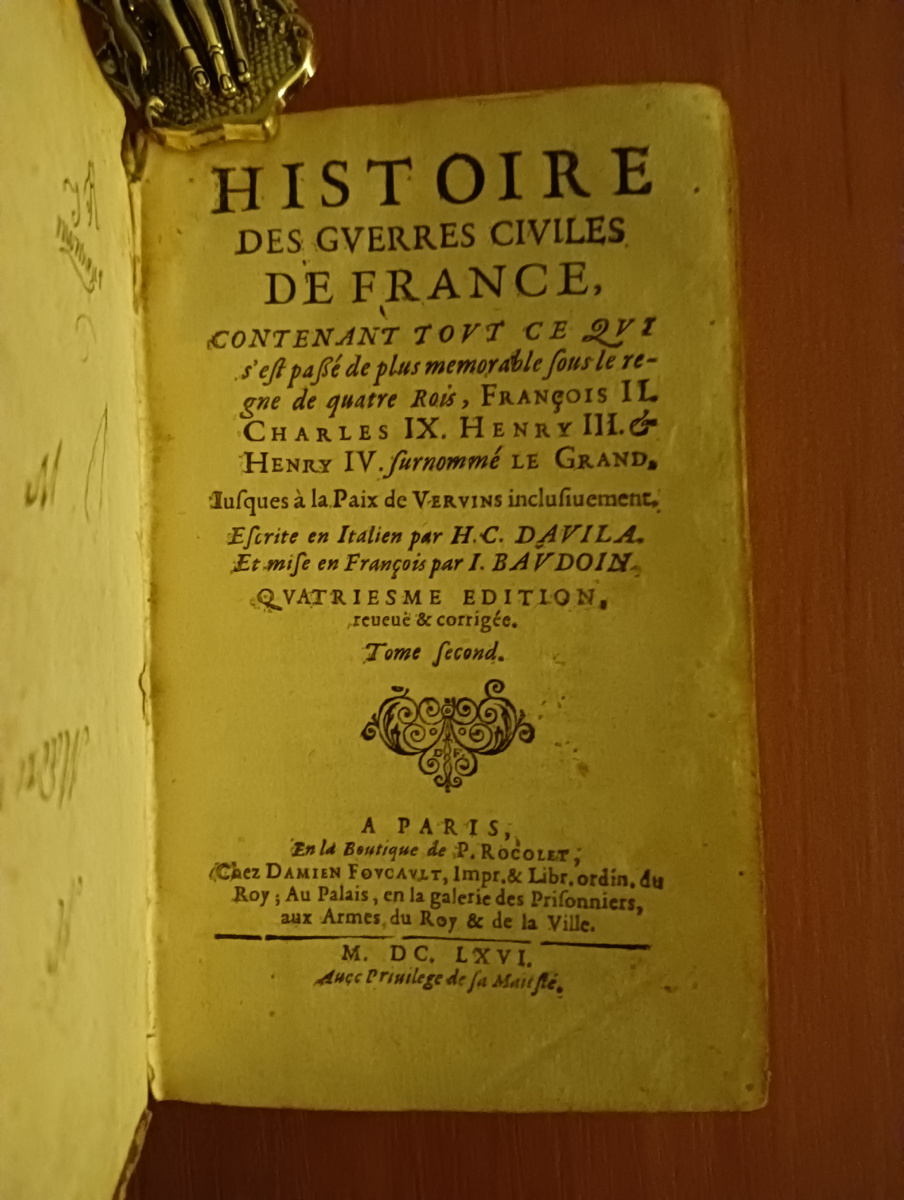 HISTOIRE
DES GVERRES CIVILES
DE FRANCE,
CONTENANT TOVT CE QVI
s'eſt paßé de plus memorable ſous le re-
gne de quatre Rois, FRANÇOIS II.
CHARLES IX. HENRY III. &
HENRY IV. ſurnommé LE GRAND.
Iuſques à la Paix de VERVINS incluſiuement.
Eſcrite en Italien par H. C. DAVILA.
Et miſe en François par I. BAVDOIN.
QVATRIESME EDITION,
reueuë & corrigée.
Tome ſecond.
D F
A PARIS,
En la Boutique de P. ROCOLET,
Chez DAMIEN FOVCAVLT, Impr. & Libr. ordin. du
Roy ; Au Palais, en la galerie des Priſonniers,
aux Armes du Roy & de la Ville.
M. DC. LXVI.
Auec Priuilege de ſa Maieſté.